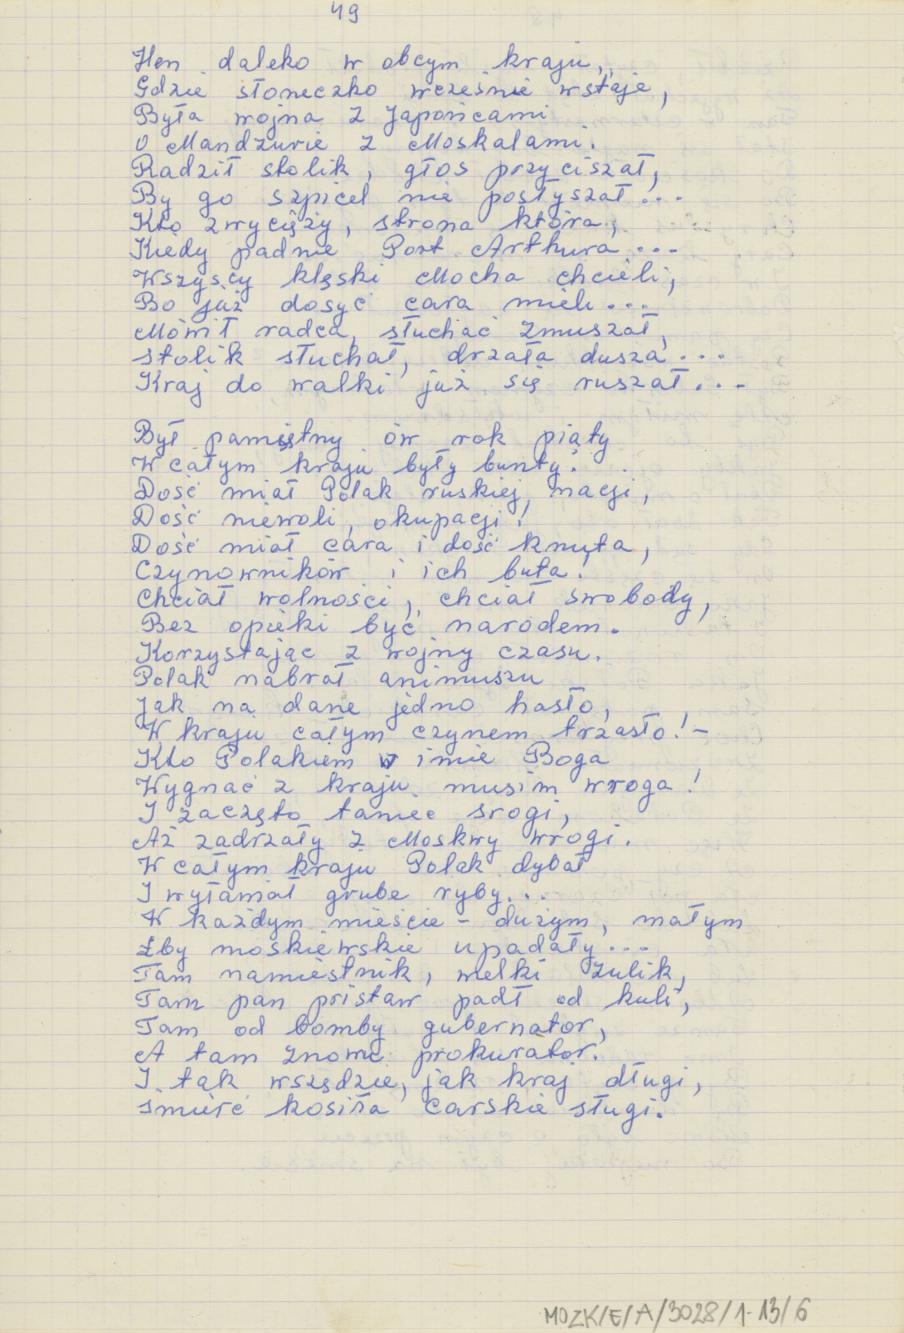 49
Hen daleko w obcym kraju,
Gdzie słoneczko wcześnie wstaje,
Była wojna z Japońcami
O Mandżurie z Moskalami.
Radził stolik, głos przyciszał,
By go szpicel nie posłyszał...
Kto zwycięży, strona która,
Kiedy padnie Port Arthura...
Wszyscy klęski Mocha chcieli,
Bo już dosyć cara mieli...
Mówił radca, słuchać zmuszał,
Stolik słuchał, drżała dusza...
Kraj do walki już się ruszał...
Był pamiętny ów rok piąty
W całym kraju były bunty!
Dość miał Polak ruskiej nacji,
Dość niewoli, okupacji!
Dość miał cara i dość knuta,
Czynowników i ich buta!
Chciał wolności, chciał swobody,
Bez opieki być narodem.
Korzystając z wojny czasu.
Polak nabrał animuszu
Jak na dane jedno hasło,
W kraju całym czynem trzasło!-
Kto Polakiem w imie Boga
Wygnać z kraju musim wroga!
I zaczęto taniec srogi,
Aż zadrżały z Moskwy wrogi.
W całym kraju Polak dybał
I wyłamał grube ryby...
W każdym mieście - dużym, małym
Łby moskiewskie upadały...
Tam namiestnik, wielki żulik,
Tam pan pristaw padł od kuli,
Tam od bomby gubernator,
A tam znowu prokurator.
I tak wszędzie, jak kraj długi,
Śmierć kosiła carskie sługi.
MOZK/E/A/3028/1-13/6